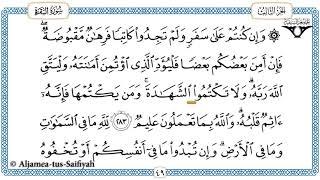 الجزء الثالث
سورة البقرة
۞ وَإِن كُنتُمْ عَلَىٰ سَفَرٍ وَلَمْ تَجِدُوا۟ كَاتِبًا فَرِهَٰنٌ مَّقْبُوضَةٌ ۖ
فَإِنْ أَمِنَ بَعْضُكُم بَعْضًا فَلْيُؤَدِّ ٱلَّذِى ٱؤْتُمِنَ أَمَٰنَتَهُۥ وَلْيَتَّقِ
ٱللَّهَ رَبَّهُۥ ۗ وَلَا تَكْتُمُوا۟ ٱلشَّهَٰدَةَ ۚ وَمَن يَكْتُمْهَا فَإِنَّهُۥٓ
ءَاثِمٌ قَلْبُهُۥ ۗ وَٱللَّهُ بِمَا تَعْمَلُونَ عَلِيمٌ ﴿٢٨٣﴾ لِّلَّهِ مَا فِى ٱلسَّمَٰوَٰتِ
وَمَا فِى ٱلْأَرْضِ ۗ وَإِن تُبْدُوا۟ مَا فِىٓ أَنفُسِكُمْ أَوْ تُخْفُوهُ
© Aljamea-tus-Saifiyah
٤٩